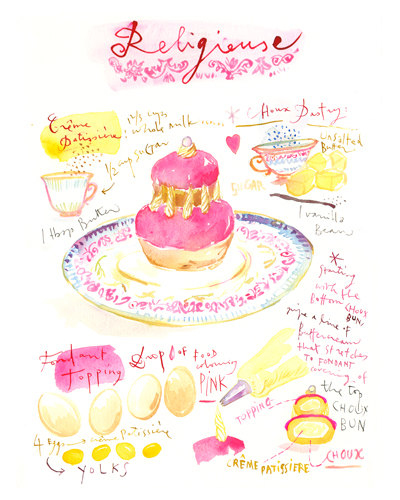 Religieuse
Crème
Patissière:
whole milk
1/2 cup sugar
1 tbsp Butter
* Choux Pastry:
Unsalted
Butter
SUGAR
1 vanilla
Bean
*
Starting
with the
Bottom CHOUX
BUN,
pipe a line of
Buttercream
that stretches
to FONDANT
covering of
the top
CHOUX
BUN
Fondant
Topping
Drop of FOOD
colouring
PINK
4 Eggs
crème patissière
YOLKS
TOPPING
CRÈME PATISSIERE
CHOUX